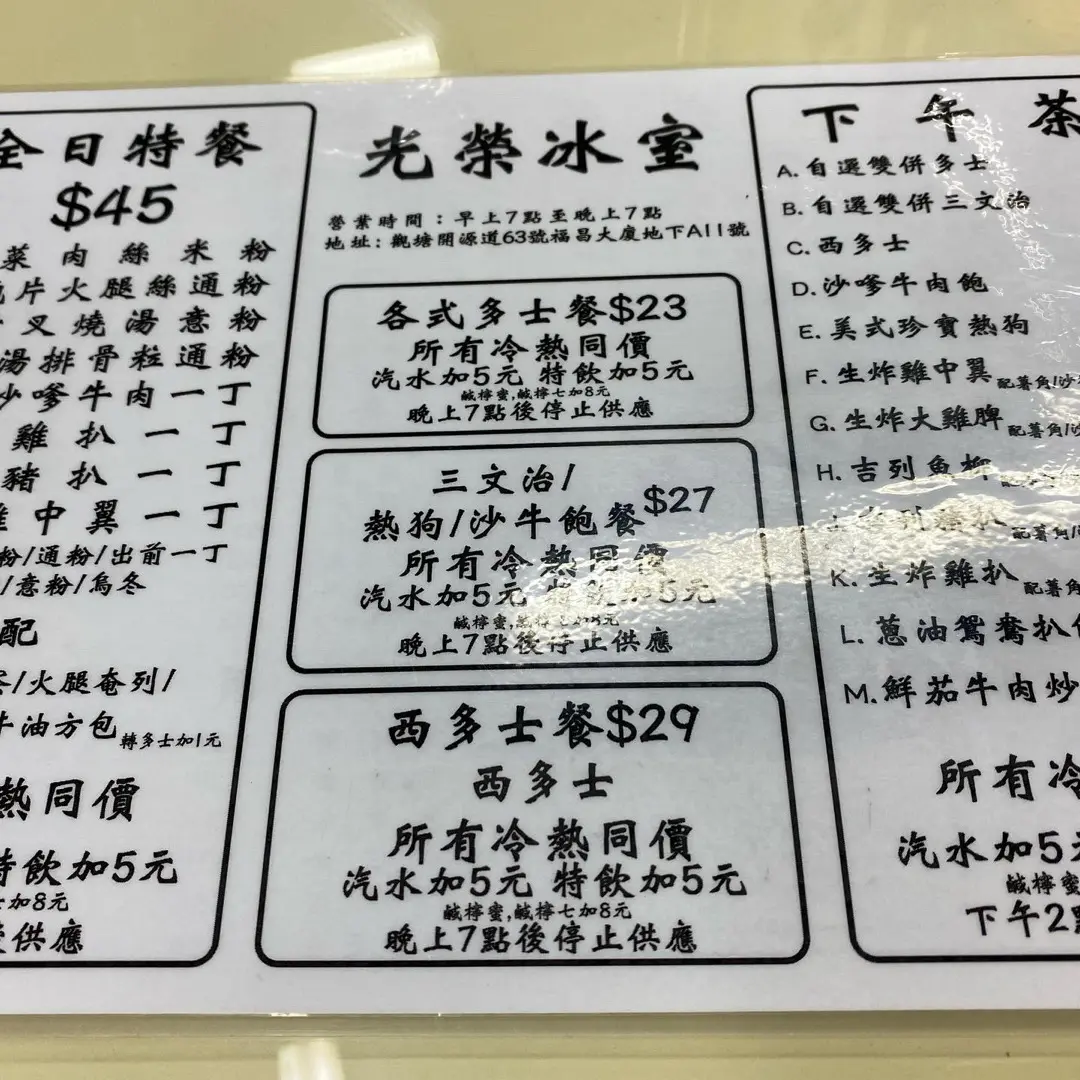 全日特餐
$45
菜肉絲米粉
片火腿絲通粉
叉燒湯意粉
湯排骨粒通粉
沙嗲牛肉一丁
雞扒一丁
豬扒一丁
中翼一丁
粉/通粉/出前一丁
/意粉/烏冬
配
/火腿奄列/
牛油方包 轉多士加1元
熱同價
特飲加5元
加8元
供應
光榮冰室
營業時間：早上7點至晚上7點
地址：觀塘開源道63號福昌大廈地下A11號
各式多士餐$23
所有冷熱同價
汽水加5元 特飲加5元
鹹檸蜜,鹹檸七加8元
晚上7點後停止供應
三文治/
熱狗/沙牛飽餐$27
所有冷熱同價
汽水加5元 特飲加5元
鹹檸蜜,鹹檸七加8元
晚上7點後停止供應
西多士餐$29
西多士
所有冷熱同價
汽水加5元 特飲加5元
鹹檸蜜,鹹檸七加8元
晚上7點後停止供應
下午茶
A. 自選雙併多士
B. 自選雙併三文治
C. 西多士
D. 沙嗲牛肉飽
E. 美式珍寶熱狗
F. 生炸雞中翼 配薯角/沙
G. 生炸大雞脾 配薯角/沙
H. 吉列魚柳
配薯角/
K. 生炸雞扒 配薯角
L. 蔥油鴛鴦扒
M. 鮮茄牛肉炒
所有冷
汽水加5元
鹹檸蜜
下午2點